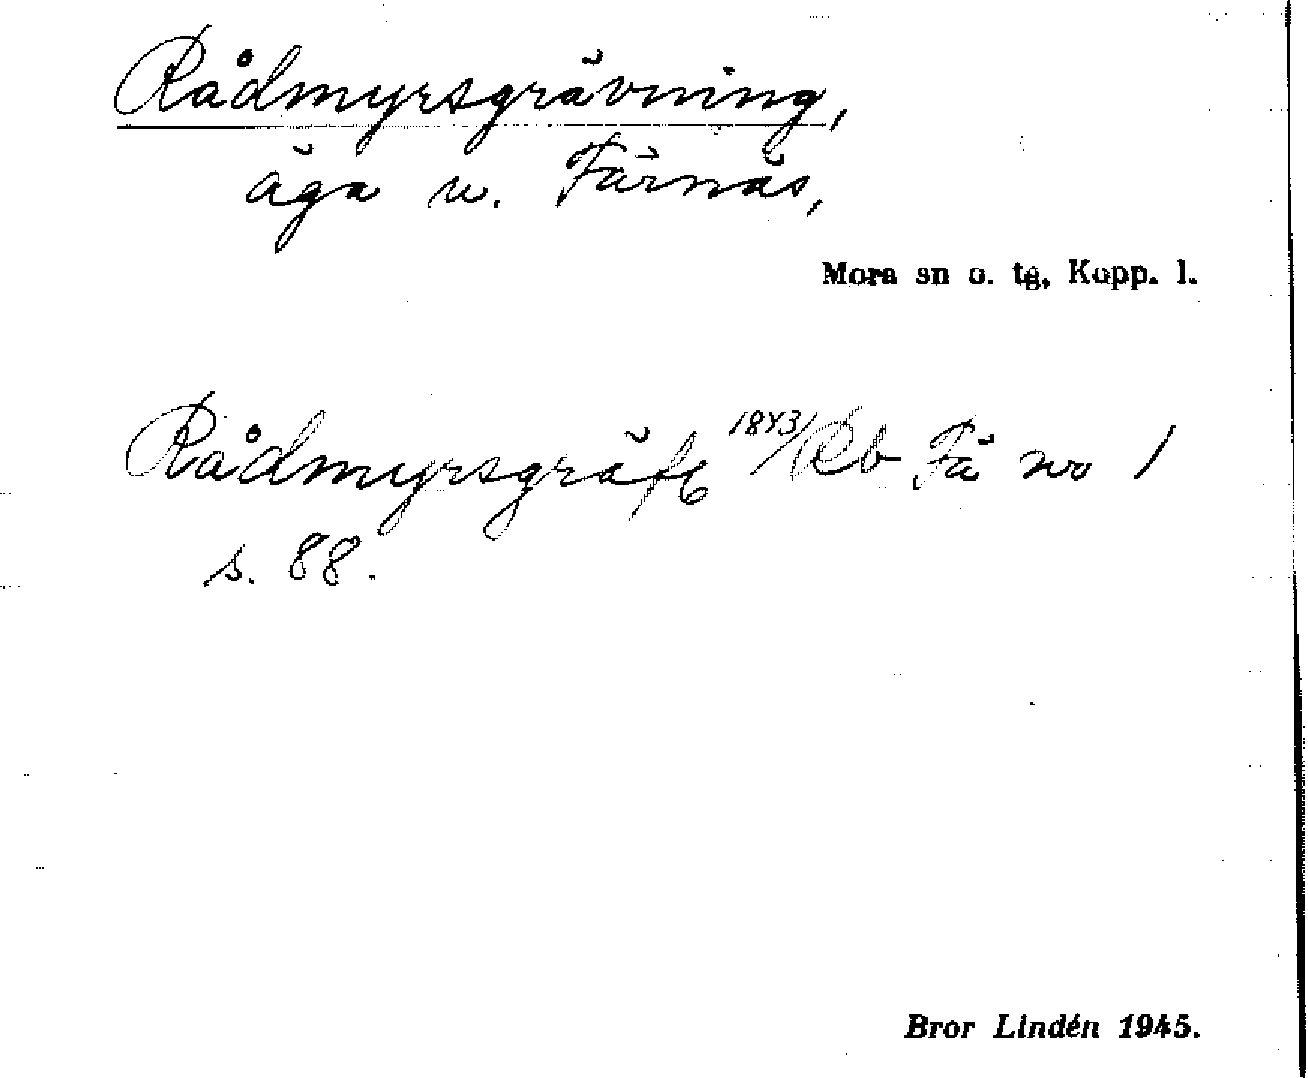 Rådmyrsgrävning,
äga w. Färnäs,
Mora sn o. tg, Kopp. l.
Rådmyrsgräfv 1843/Rb Fä no 1
s. 88.
Bror Lindén 1945.